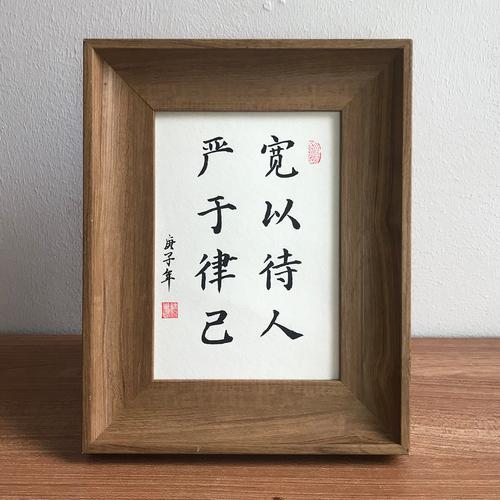 宽以待人
严于律己
庚子年